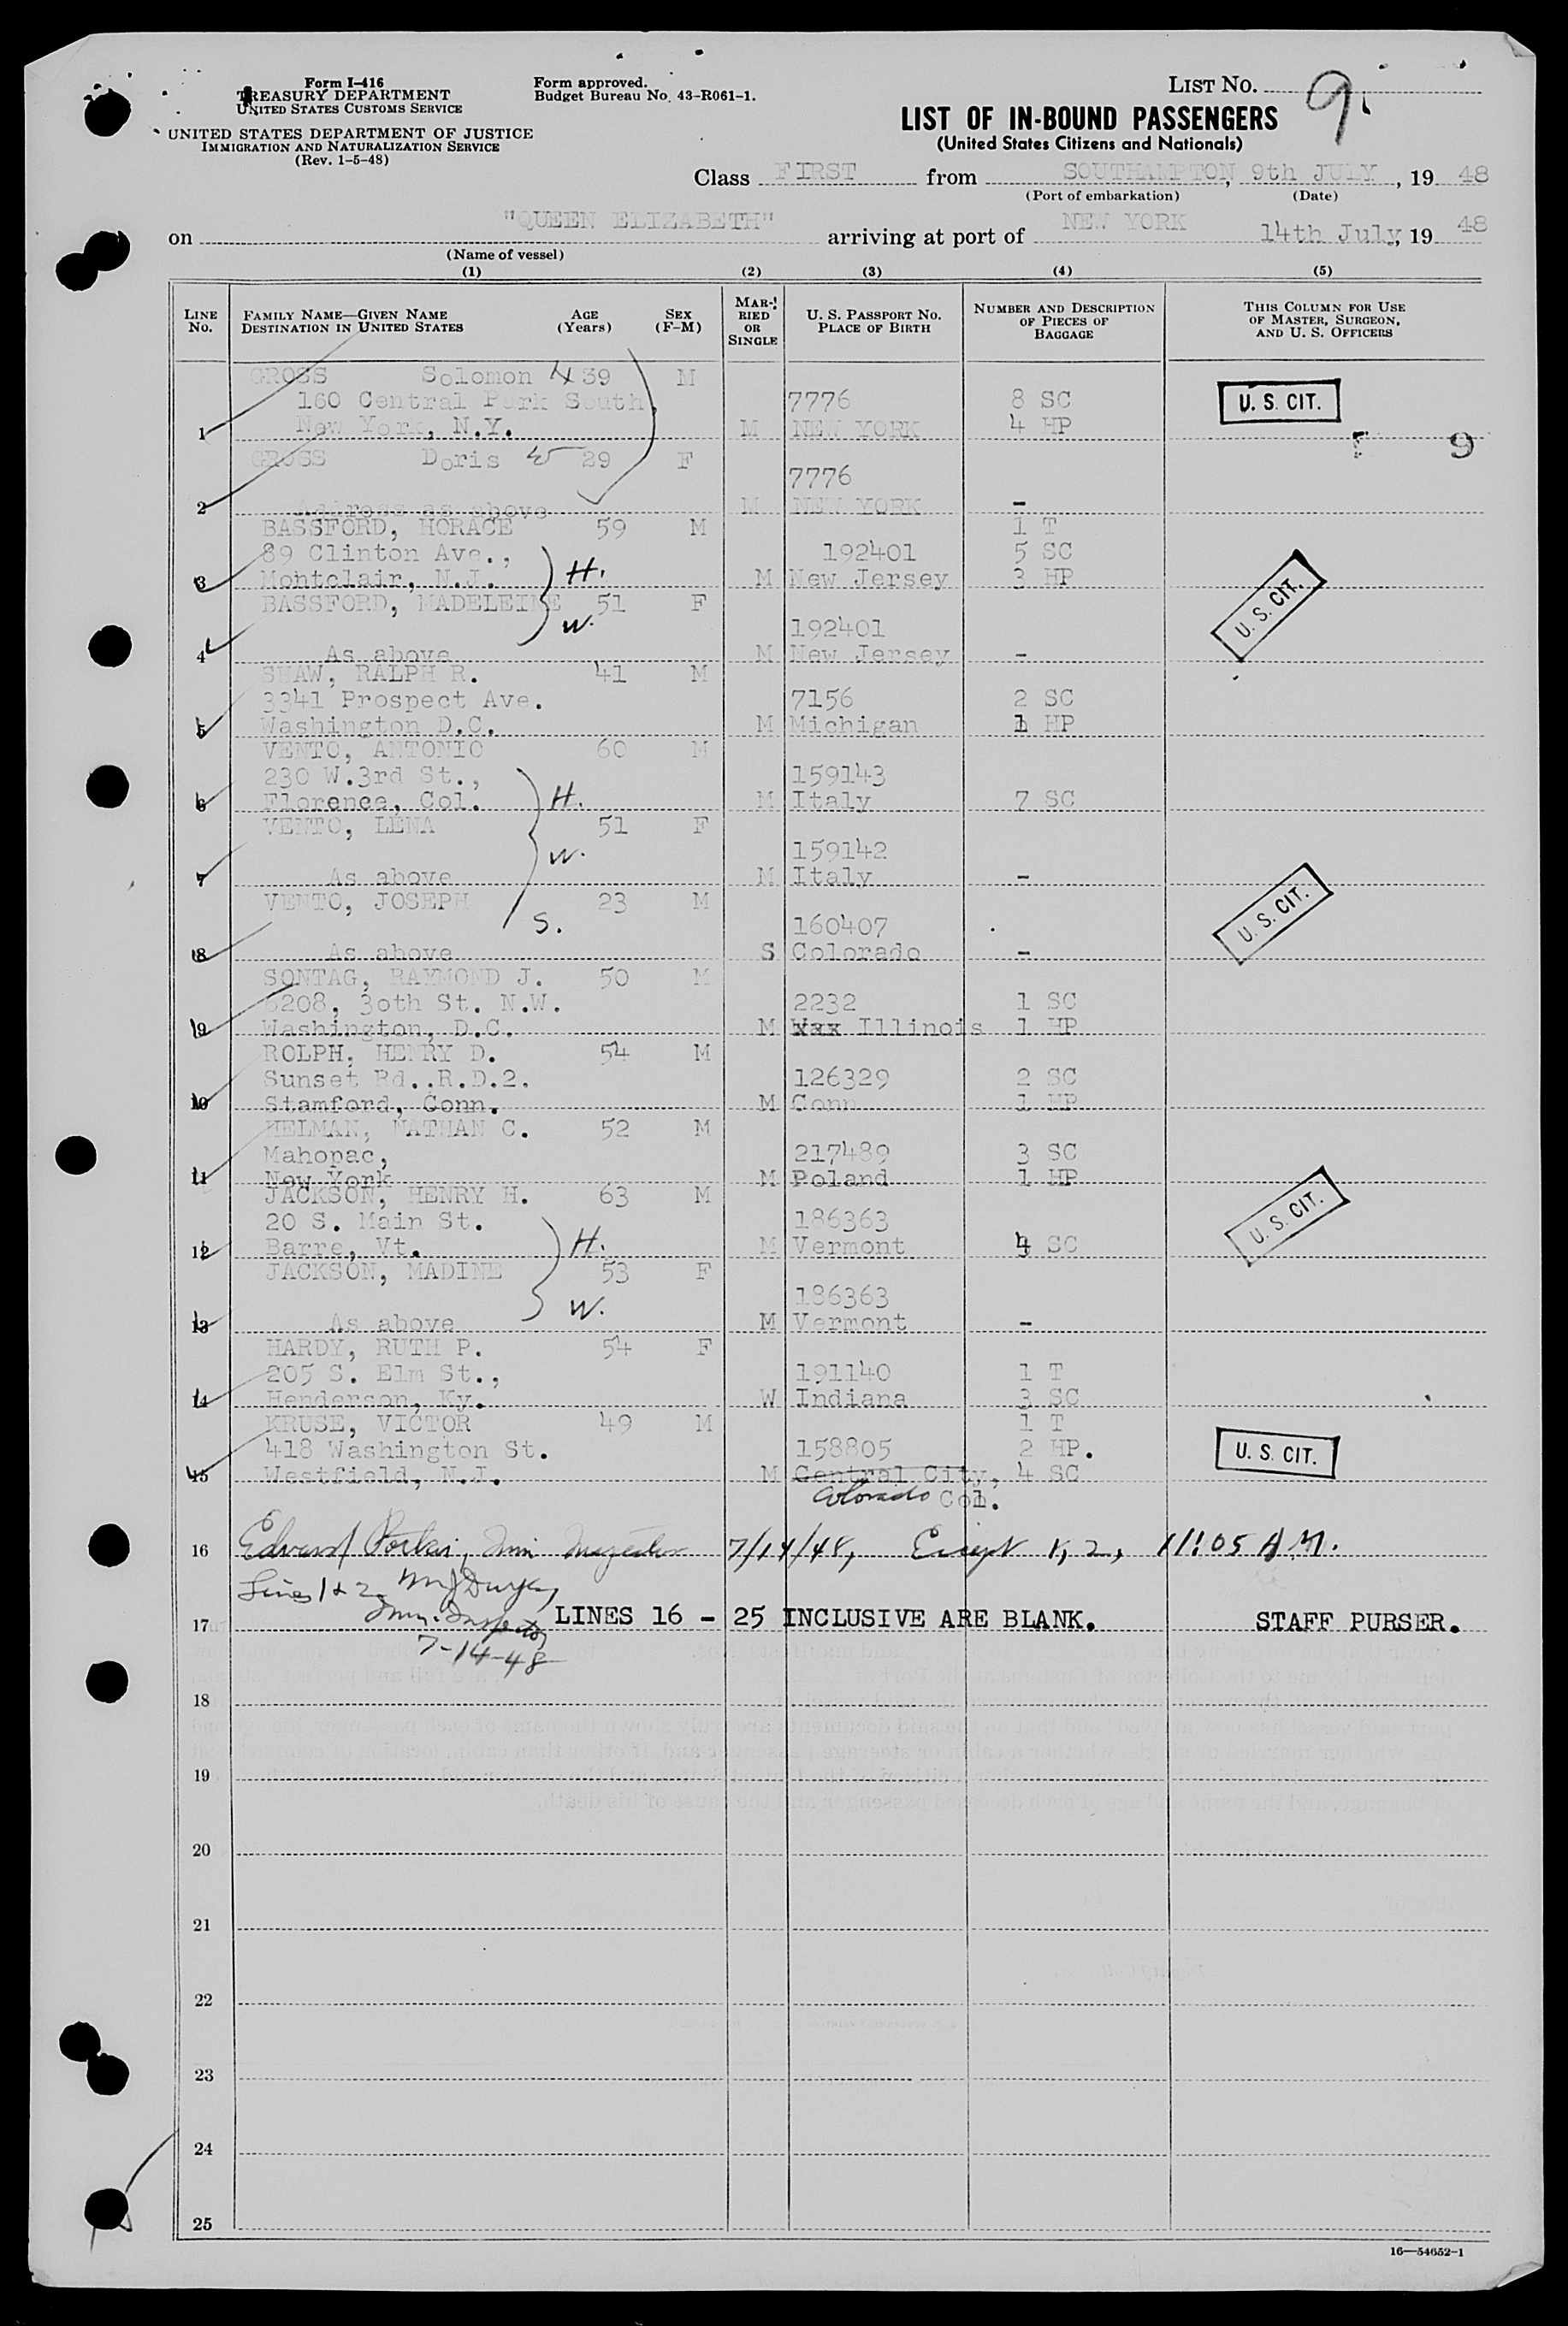 Form I-416
TREASURY DEPARTMENT
UNITED STATES CUSTOMS SERVICE
UNITED STATES DEPARTMENT OF JUSTICE
IMMIGRATION AND NATURALIZATION SERVICE
(Rev. 1-5-48)
Form approved.
Budget Bureau No. 43-R061-1.
LIST NO. 9
LIST OF IN-BOUND PASSENGERS
(United States Citizens and Nationals)
Class FIRST from SOUTHAMPTON, 9th JULY, 19 48
(Port of embarkation) (Date)
on "QUEEN ELIZABETH" arriving at port of NEW YORK 14th July, 19 48
(Name of vessel)
(1) (2) (3) (4) (5)
LINE NO. FAMILY NAME—GIVEN NAME DESTINATION IN UNITED STATES AGE (Years) SEX (F-M) MARRIED OR SINGLE U. S. PASSPORT NO. PLACE OF BIRTH NUMBER AND DESCRIPTION OF PIECES OF BAGGAGE THIS COLUMN FOR USE OF MASTER, SURGEON, AND U. S. OFFICERS
GROSS Solomon 39 M
160 Central Park South, 7776 8 SC U. S. CIT.
1 New York, N.Y. M NEW YORK 4 HP
9
GROSS Doris W 29 F
7776
2 Address as above M NEW YORK -
BASSFORD, HORACE 59 M 1 T
89 Clinton Ave., 192401 5 SC
3 Montclair, N.J. H. M New Jersey 3 HP
BASSFORD, MADELEINE 51 F
W. 192401 U. S. CIT.
4 As above M New Jersey -
SHAW, RALPH R. 41 M
3341 Prospect Ave. 7156 2 SC
5 Washington D.C. M Michigan 1 HP
VENTO, ANTONIO 60 M
230 W.3rd St., 159143
6 Florence, Col. H. M Italy 7 SC
VENTO, LENA 51 F
W. 159142
7 As above M Italy -
VENTO, JOSEPH 23 M
S. 160407 U. S. CIT.
8 As above S Colorado -
SONTAG, RAYMOND J. 50 M
5208, 30th St. N.W. 2232 1 SC
9 Washington, D.C. M Illinois 1 HP
ROLPH, HENRY D. 54 M
Sunset Rd..R.D.2. 126329 2 SC
10 Stamford, Conn. M Conn 1 HP
HELMAN, NATHAN C. 52 M
Mahopac, 217489 3 SC
11 New York M Poland 1 HP
JACKSON, HENRY H. 63 M
20 S. Main St. 186363 U. S. CIT.
12 Barre, Vt. H. M Vermont 4 SC
JACKSON, MADINE 53 F
W. 186363
13 As above M Vermont -
HARDY, RUTH P. 54 F
205 S. Elm St., 191140 1 T
14 Henderson, Ky. W Indiana 3 SC
KRUSE, VICTOR 49 M 1 T
418 Washington St. 158805 2 HP. U. S. CIT.
15 Westfield, N.J. M Central City, 4 SC
Colorado Col.
16 Edward 7/14/48, Except 1, 2, 11:05 A.M.
Lines 1 & 2
Imm. Inspector
17 LINES 16 - 25 INCLUSIVE ARE BLANK. STAFF PURSER.
7-14-48
18
19
20
21
22
23
24
25
16—54652-1